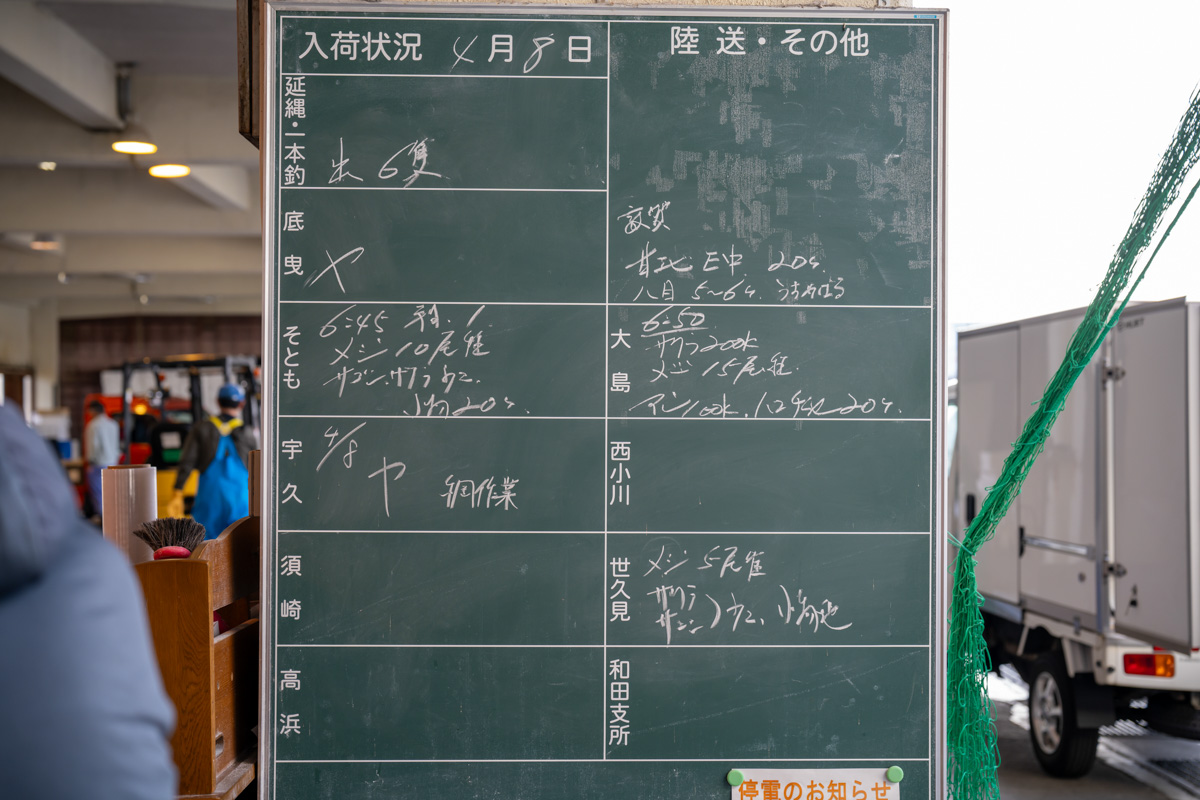 入荷状況 4月8日
延縄・一本釣
出 6隻
底曳
ヤ
そとも
6:45
メジ 10尾程
サゴシ、サワラ
小物 20ケ
宇久
4/8
ヤ 網作業
須崎
高浜
陸送・その他
敦賀
20ケ
八目 5〜6ケ
大島
6:50
サワラ 200k
メジ 15尾程
100k 20ケ
西小川
世久見
メジ 5尾程
サワラ
サゴシ
小物他
和田支所
停電のお知らせ